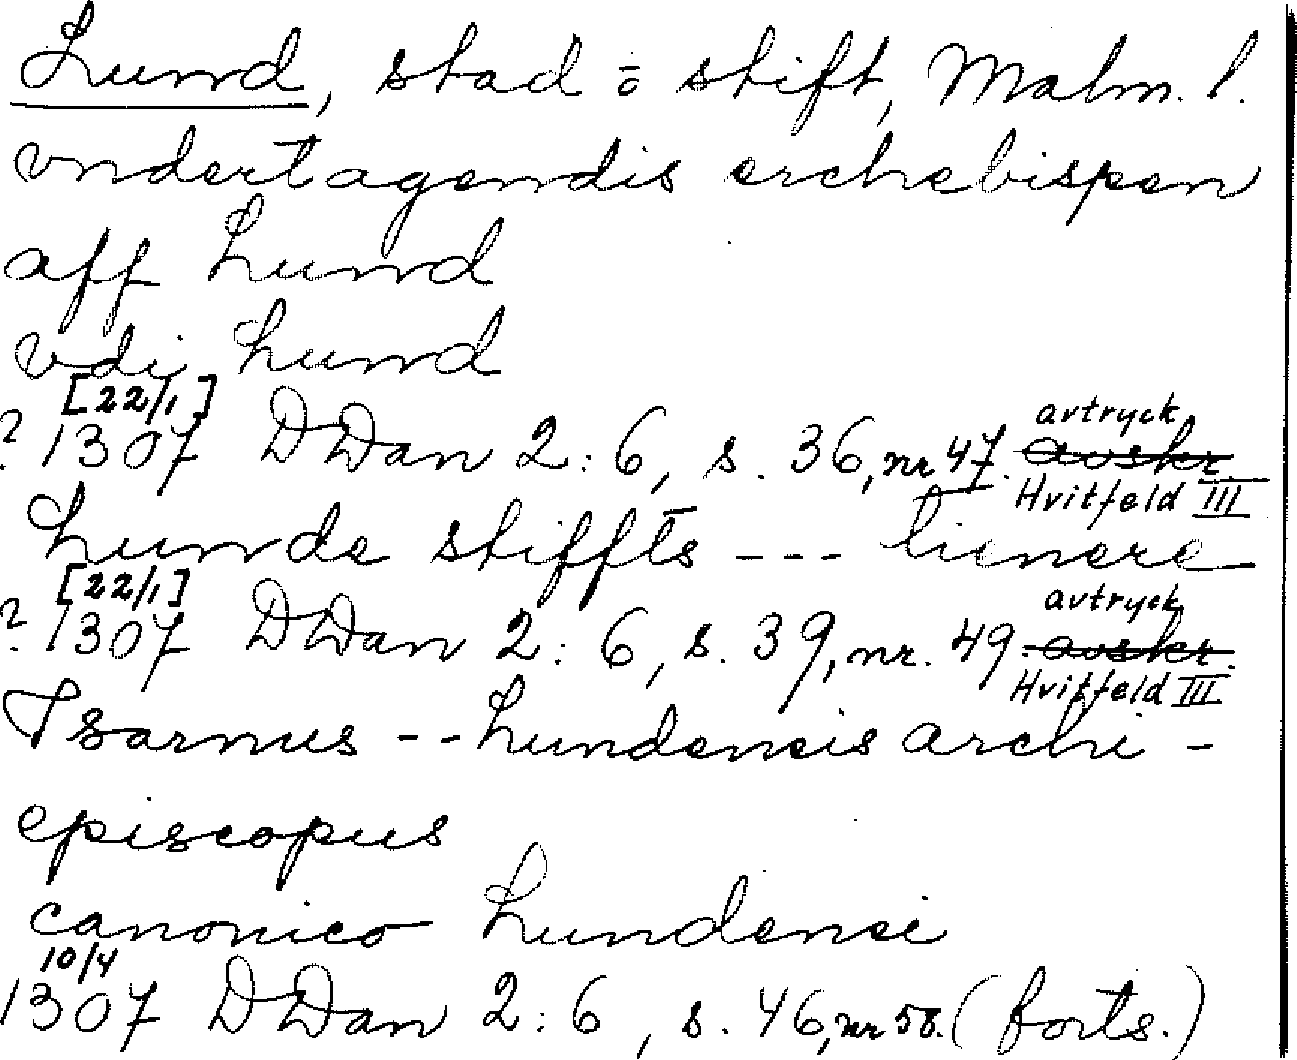 Lund, stad o stift, Malm. l.
vndertagendis erchebispen
aff Lund
vdij Lund
[22/1]
? 1307 DDan 2:6, s. 36, nr 47. avtryck
avskr
Hvitfeld III
Lunde stiffts --- lienere
[22/1]
? 1307 DDan 2:6, s. 39, nr. 49. avtryck
avskr.
Hvitfeld III
Isarnus -- Lundensis archi-
episcopus
canonico Lundensi
10/4
1307 DDan 2:6, s. 46, nr 58. (forts.)